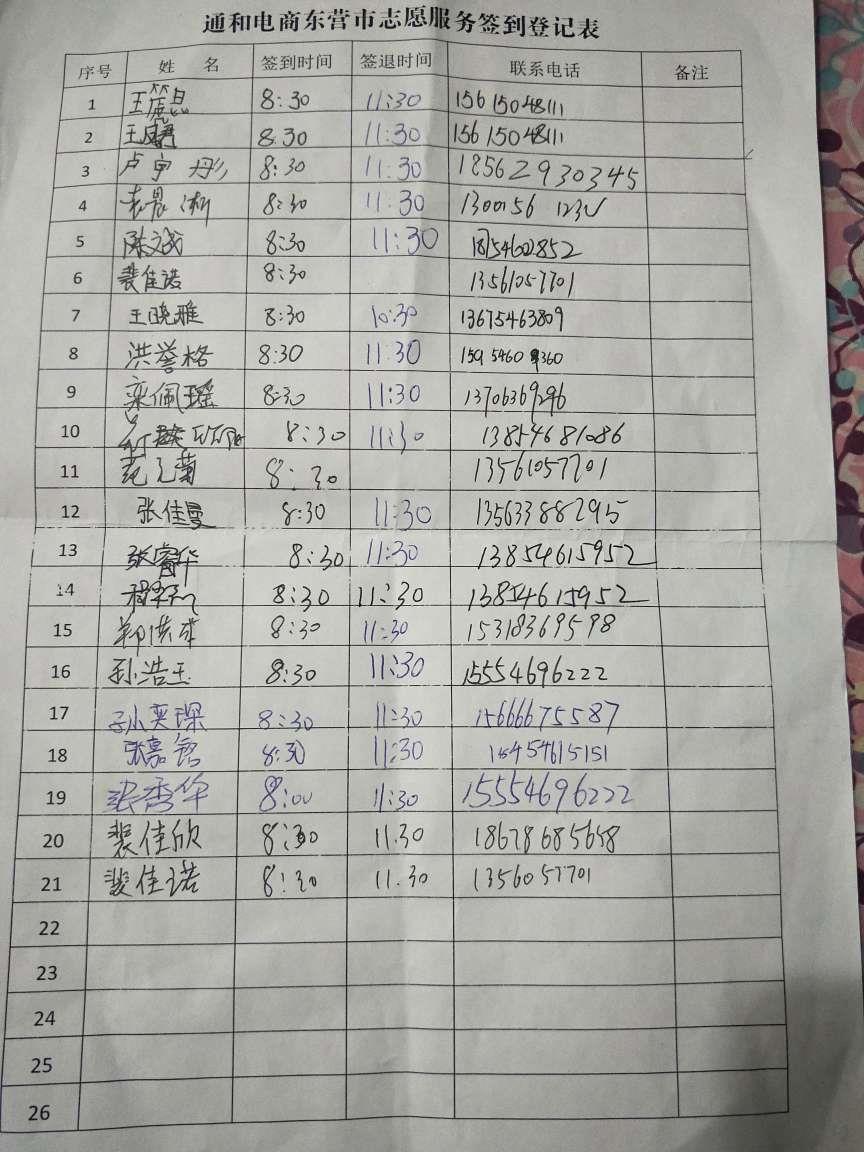 通和电商东营市志愿服务签到登记表
序号 姓 名 签到时间 签退时间 联系电话 备注
1 8:30 11:30 15615048111
2 8.30 11:30 15615048111
3 卢宇彤 8:30 11:30 18562930345
4 袁晨淅 8:30 11:30
5 陈文诚 8:30 11:30 18754602852
6 裴佳诺 8:30 13561057701
7 王晓雅 8:30 10:30 13675463809
8 洪誉格 8:30 11:30
9 栾佩瑶 8:30 11:30 13706369296
10 8:30 11:30 13854681086
11 范之菊 8:30 13561057701
12 张佳曼 8:30 11:30 13563388295
13 张睿华 8:30 11:30 13854615952
14 8:30 11:30 13854615952
15 8:30 11:30 15318369598
16 孙浩玉 8:30 11:30 15554696222
17 孙奕琛 8:30 11:30 15666675587
18 张嘉铭 8:30 11:30 15454615151
19 张秀华 8:00 11:30 15554696222
20 裴佳欣 8:30 11.30 18678685658
21 裴佳诺 8:30 11.30 1356057701
22
23
24
25
26